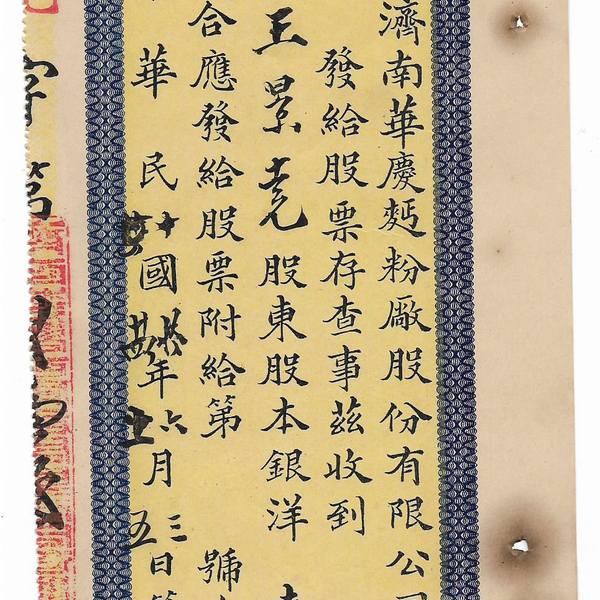 濟南華慶麪粉厰股份有限公司
發給股票存查事茲收到
王景堯股東股本銀洋
合應發給股票附給第 號
華民國 年六月三日
五
字第